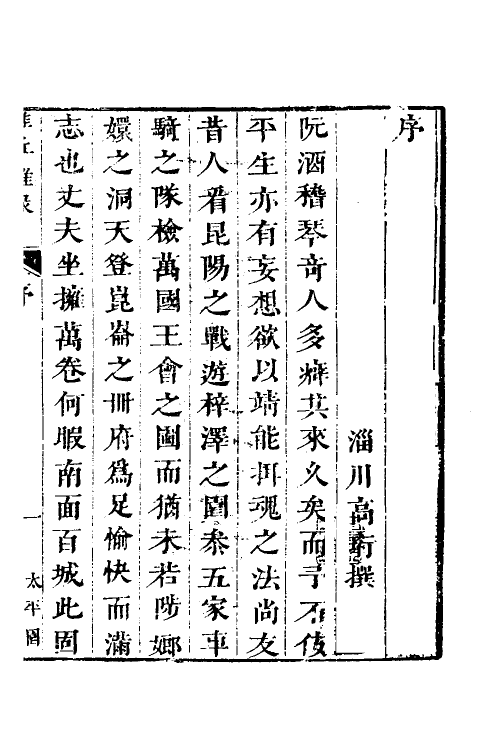 序
淄川高珩撰
阮酒稽琴奇人多癖其來久矣而予不伎
平生亦有妄想欲以靖能拘魂之法尚友
昔人看昆陽之戰遊梓澤之園參五家車
騎之隊檢萬國王會之圖而猶未若陟嫏
嬛之洞天登崑崙之冊府爲足愉快而滿
志也丈夫坐擁萬卷何暇南面百城此固
雜錄
序
一
太平園